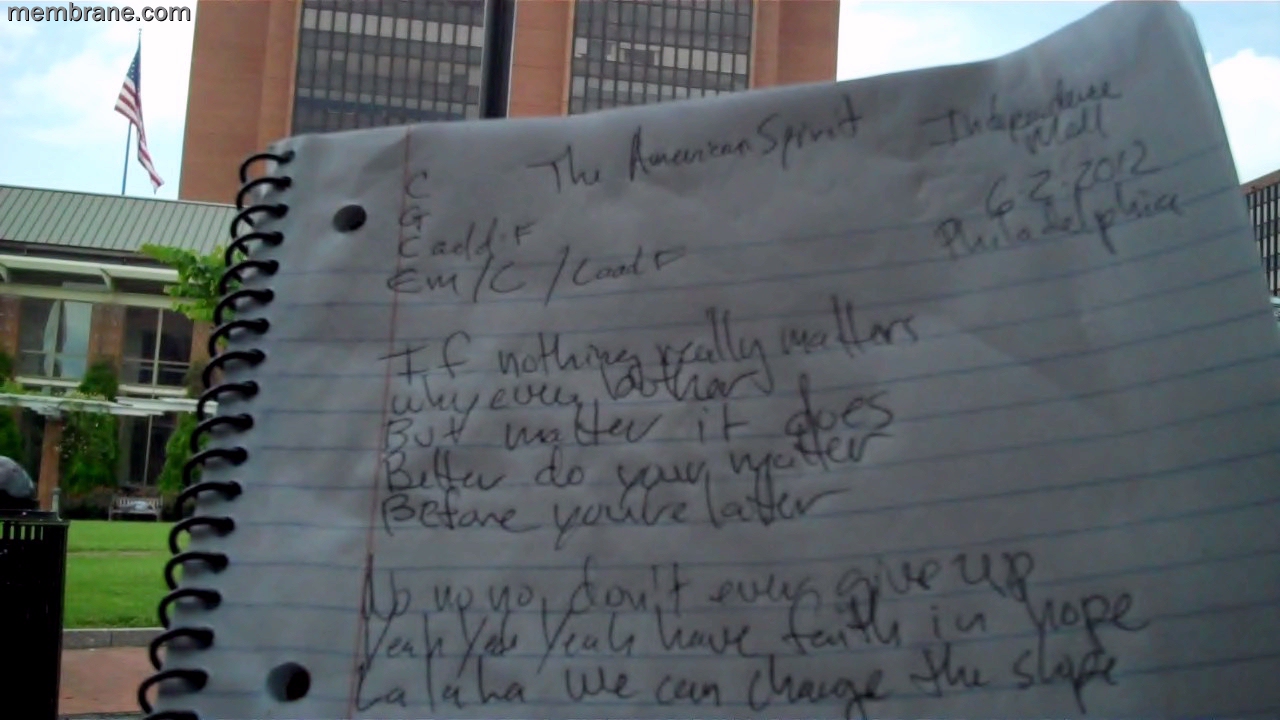 membrane.com
The American Spirit
Independence
Mall
6-2-2012
Philadelphia
C
G
Cadd·F
Em/C/CaddF
If nothing really matters
why ever bother
But matter it does
Better do your matter
Before you're latter
No no no, don't ever give up
Yeah Yeah Yeah have faith in hope
La la ha We can change the slope